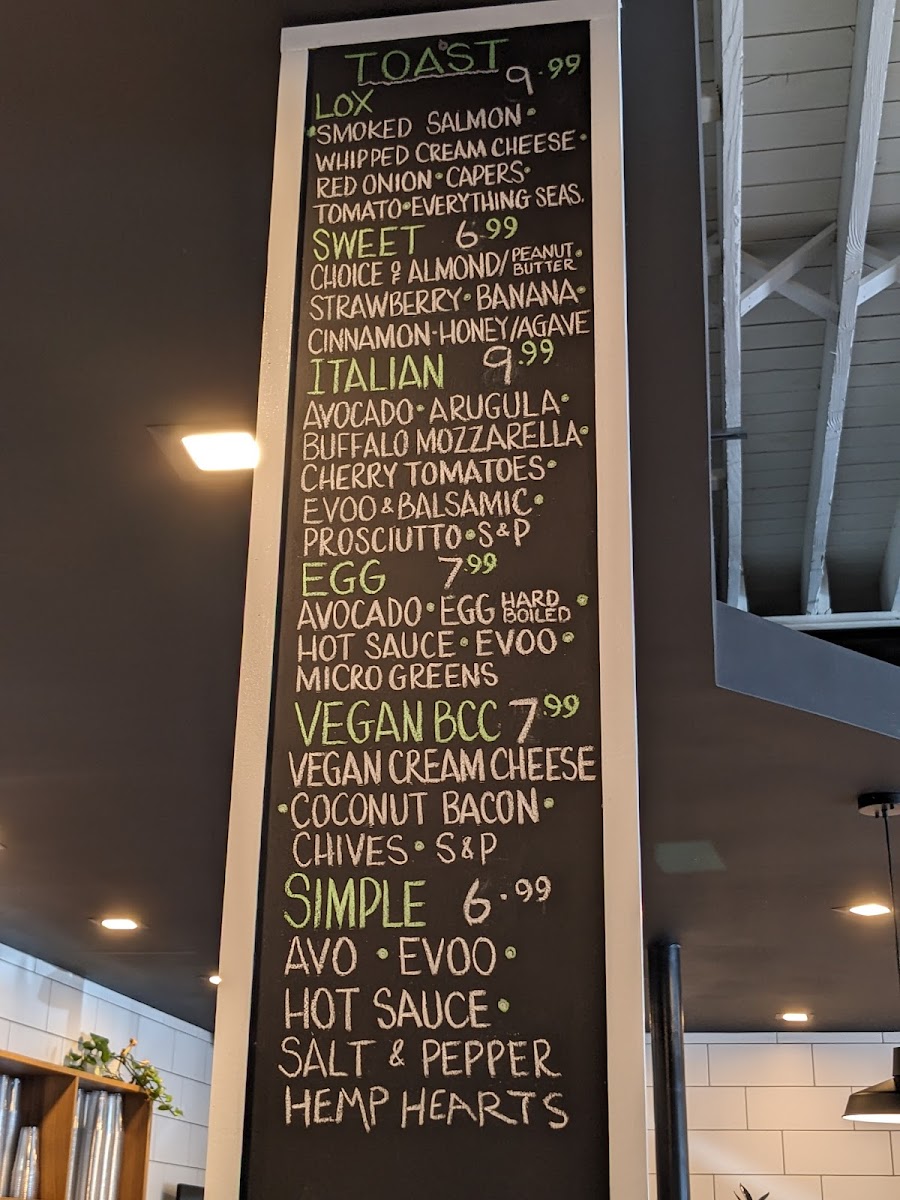 TOAST
LOX 9.99
•SMOKED SALMON•
WHIPPED CREAM CHEESE•
RED ONION•CAPERS•
TOMATO•EVERYTHING SEAS.
SWEET 6.99
CHOICE OF ALMOND/PEANUT BUTTER•
STRAWBERRY•BANANA•
CINNAMON-HONEY/AGAVE
ITALIAN 9.99
AVOCADO•ARUGULA•
BUFFALO MOZZARELLA•
CHERRY TOMATOES•
EVOO & BALSAMIC•
PROSCIUTTO•S&P
EGG 7.99
AVOCADO•EGG HARD BOILED•
HOT SAUCE•EVOO•
MICRO GREENS
VEGAN BCC 7.99
VEGAN CREAM CHEESE
•COCONUT BACON•
CHIVES•S&P
SIMPLE 6.99
AVO •EVOO•
HOT SAUCE•
SALT & PEPPER
HEMP HEARTS